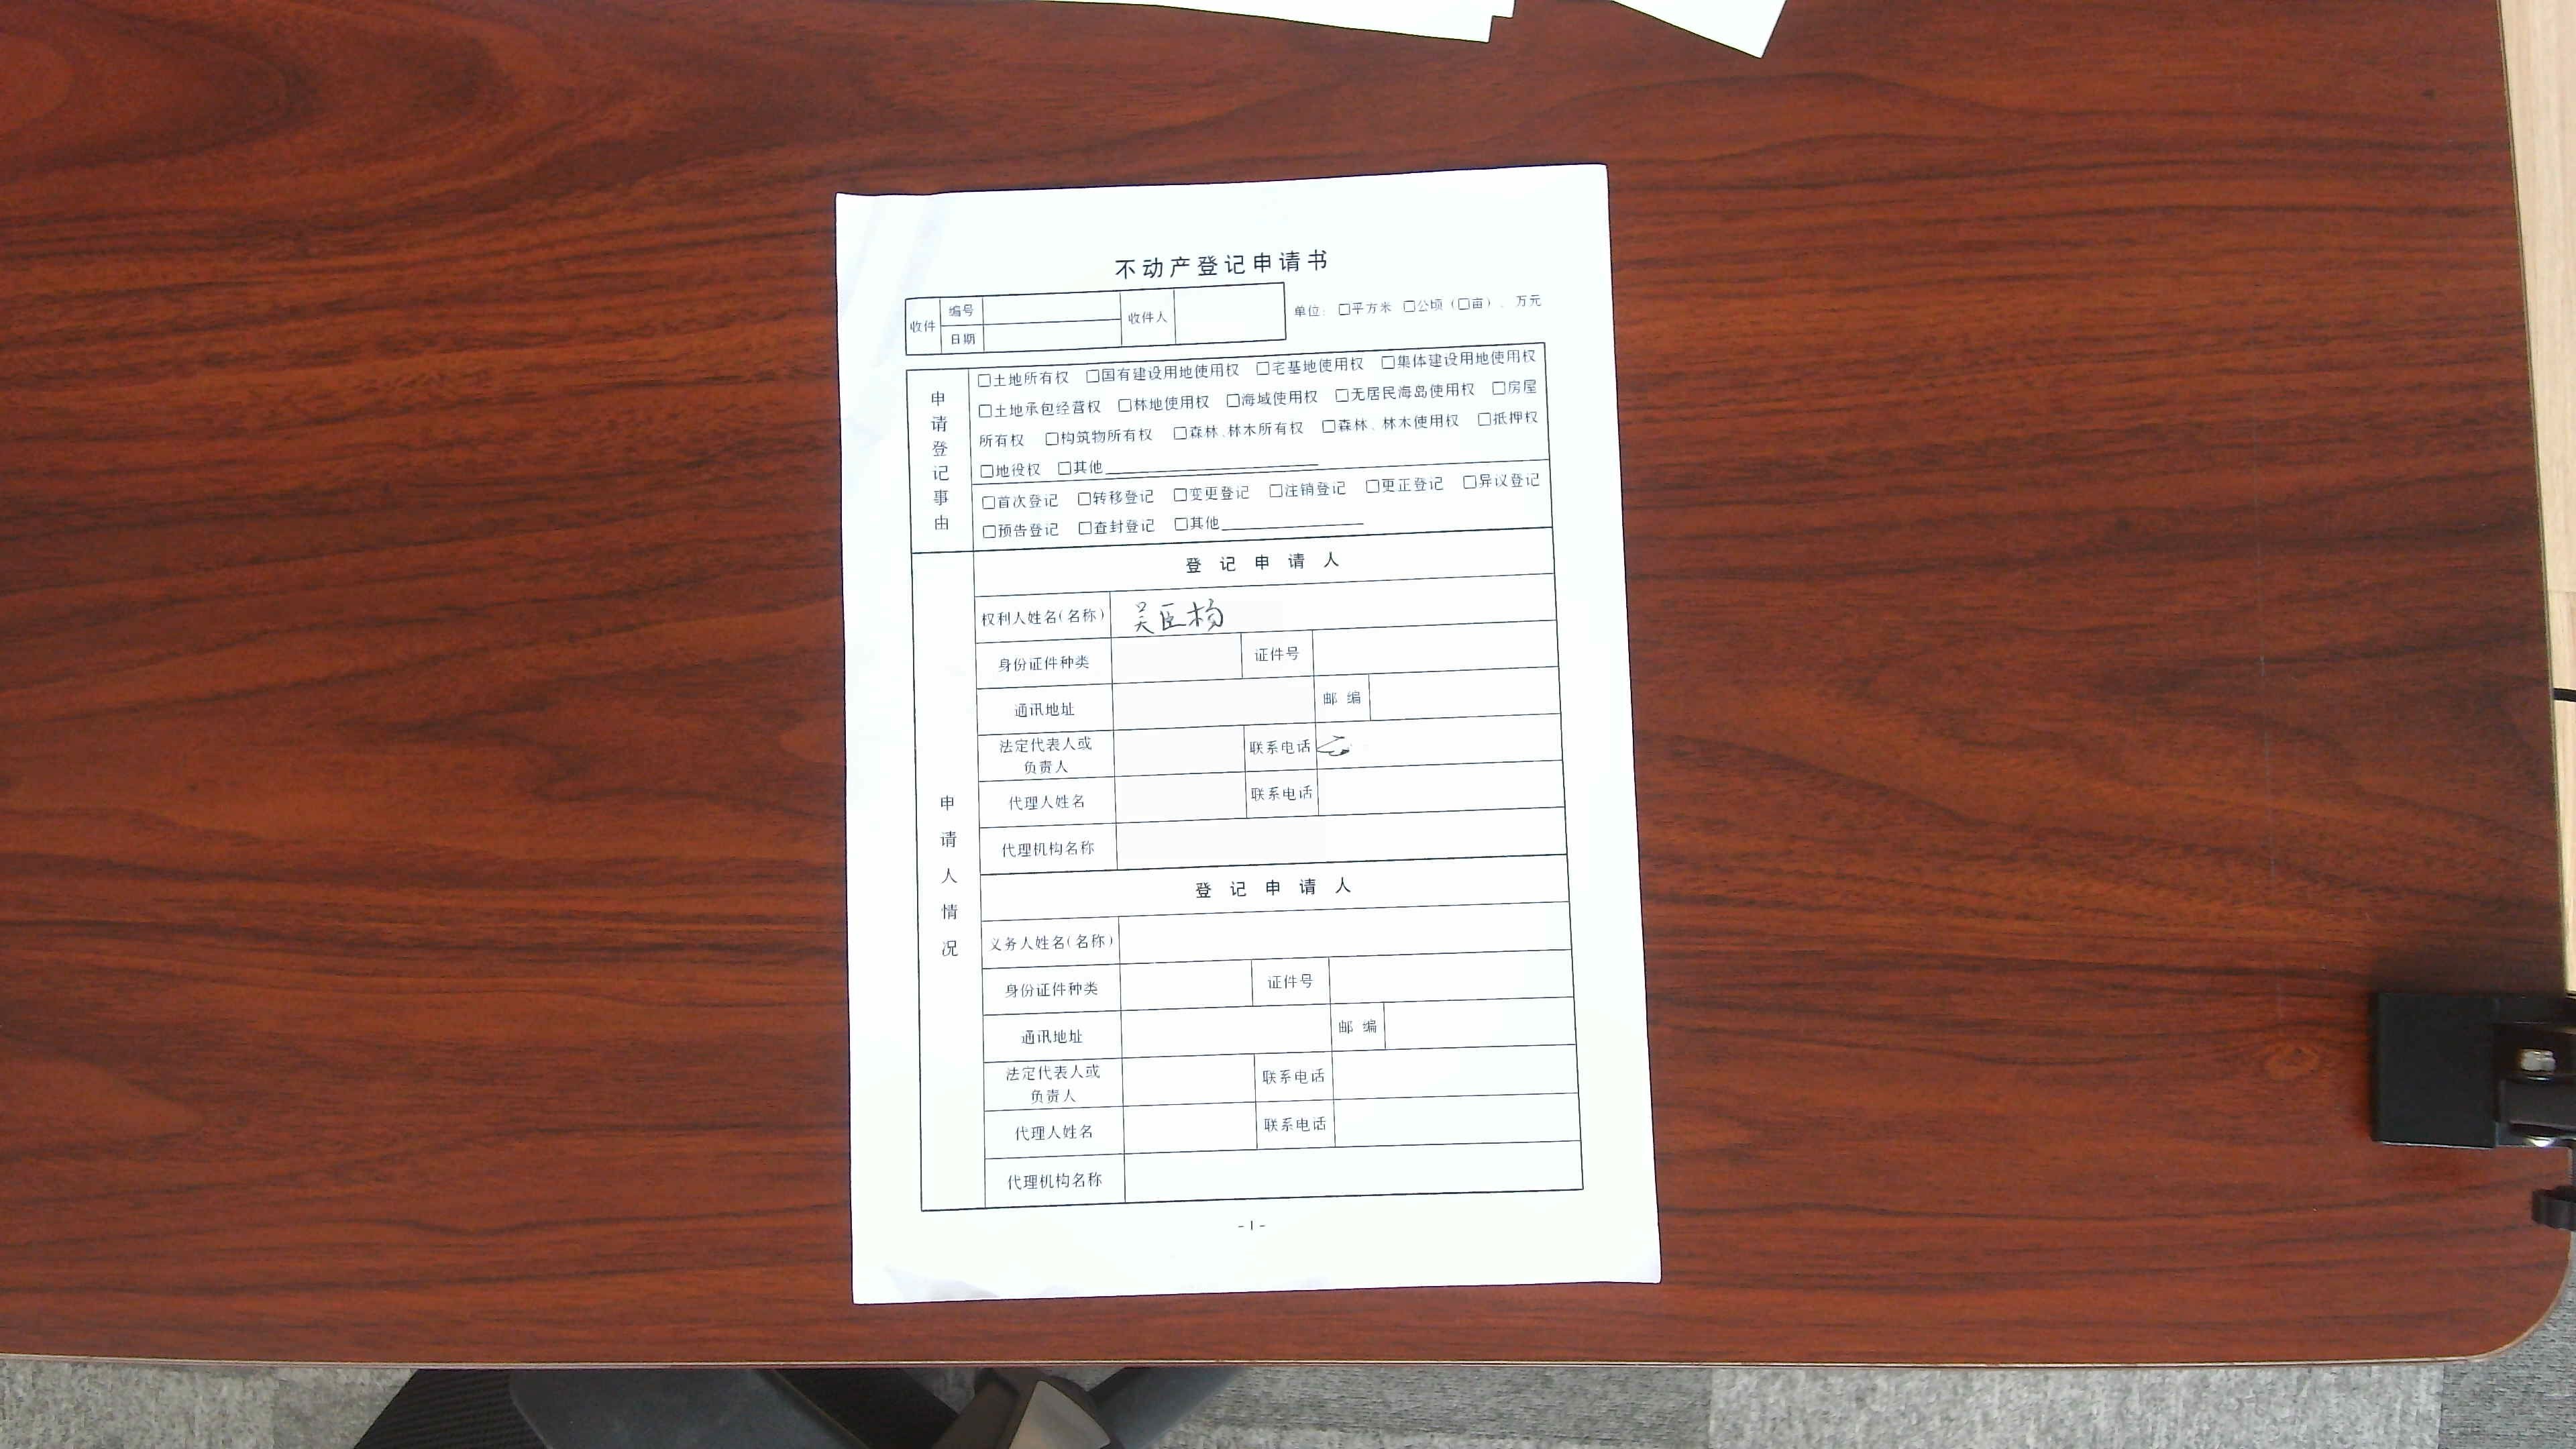 不动产登记申请书
收件 编号 收件人 单位：□平方米 □公顷（□亩）、万元
日期
申请登记事由
□土地所有权 □国有建设用地使用权 □宅基地使用权 □集体建设用地使用权
□土地承包经营权 □林地使用权 □海域使用权 □无居民海岛使用权 □房屋
所有权 □构筑物所有权 □森林、林木所有权 □森林、林木使用权 □抵押权
□地役权 □其他
□首次登记 □转移登记 □变更登记 □注销登记 □更正登记 □异议登记
□预告登记 □查封登记 □其他
申请人情况
登记申请人
权利人姓名（名称） 吴臣杨
身份证件种类 证件号
通讯地址 邮编
法定代表人或 联系电话
负责人
代理人姓名 联系电话
代理机构名称
登记申请人
义务人姓名（名称）
身份证件种类 证件号
通讯地址 邮编
法定代表人或 联系电话
负责人
代理人姓名 联系电话
代理机构名称
-1-